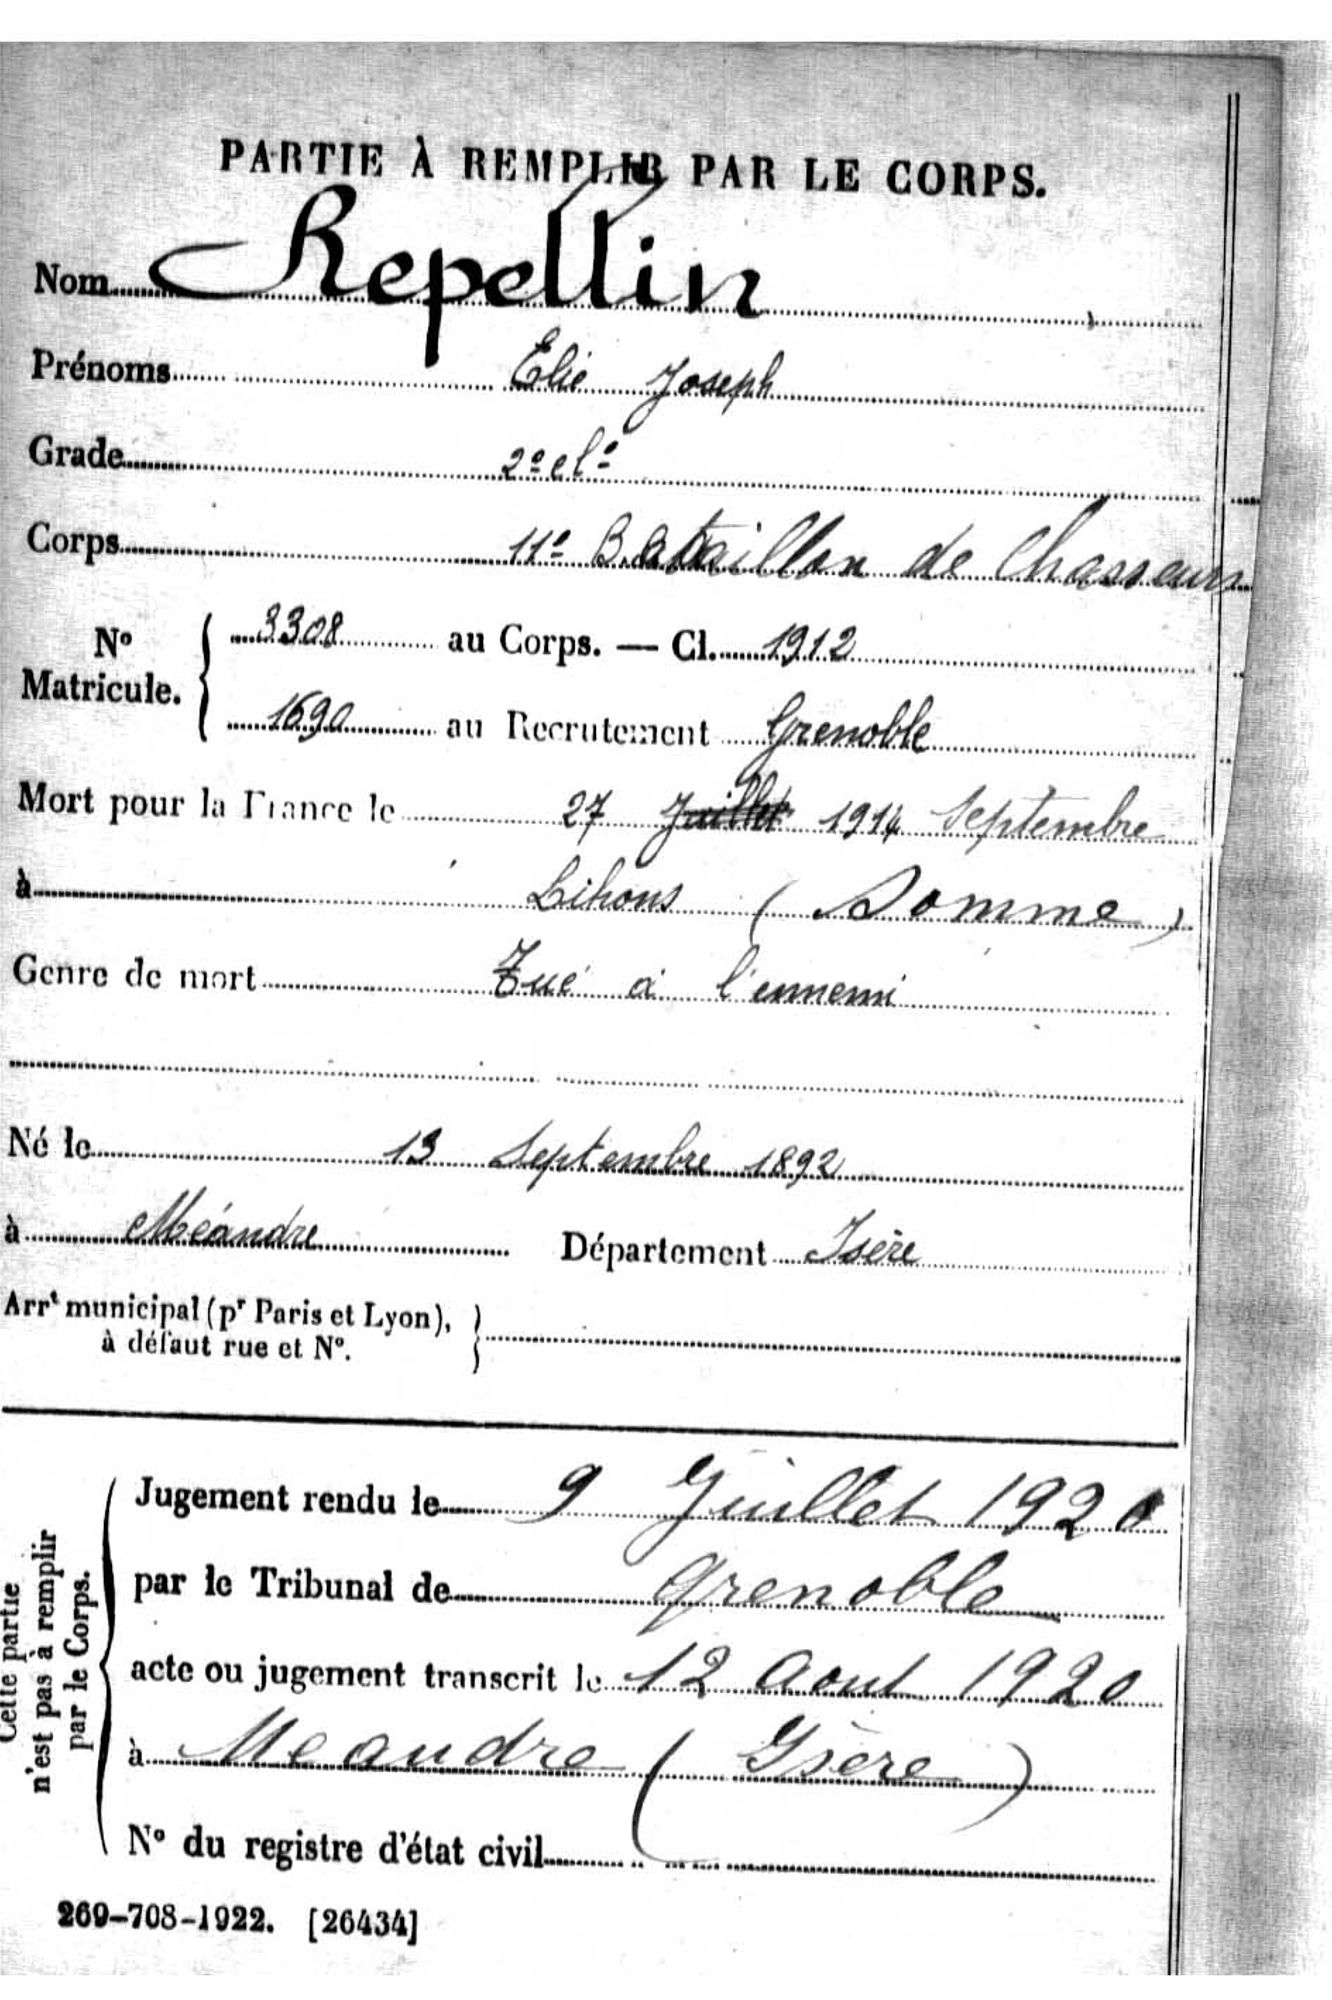 PARTIE À REMPLIR PAR LE CORPS.
Nom Repellin
Prénoms Elie Joseph
Grade 2e cl.
Corps 11e Bataillon de Chasseurs
No Matricule. { 3308 au Corps. — Cl. 1912
1690 au Recrutement Grenoble
Mort pour la France le 27 Juillet 1914 Septembre
à Lihons (Somme)
Genre de mort Tué à l'ennemi
Né le 13 Septembre 1892
à Méandre Département Isère
Arrt municipal (pr Paris et Lyon), }
à défaut rue et No.
Cette partie
n'est pas à remplir
par le Corps.
Jugement rendu le 9 Juillet 1920
par le Tribunal de Grenoble
acte ou jugement transcrit le 12 Aout 1920
à Meandre (Isère)
No du registre d'état civil
269-708-1922. [26434]